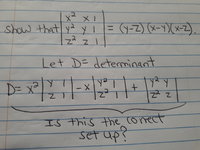 show that | x² x 1 |
| y² y 1 | = (y-z)(x-y)(x-z).
| z² z 1 |
Let D= determinant
D= x² | y 1 | -x | y² 1 | + | y² y |
| z 1 | | z² 1 | | z² z |
Is this the correct
set up?